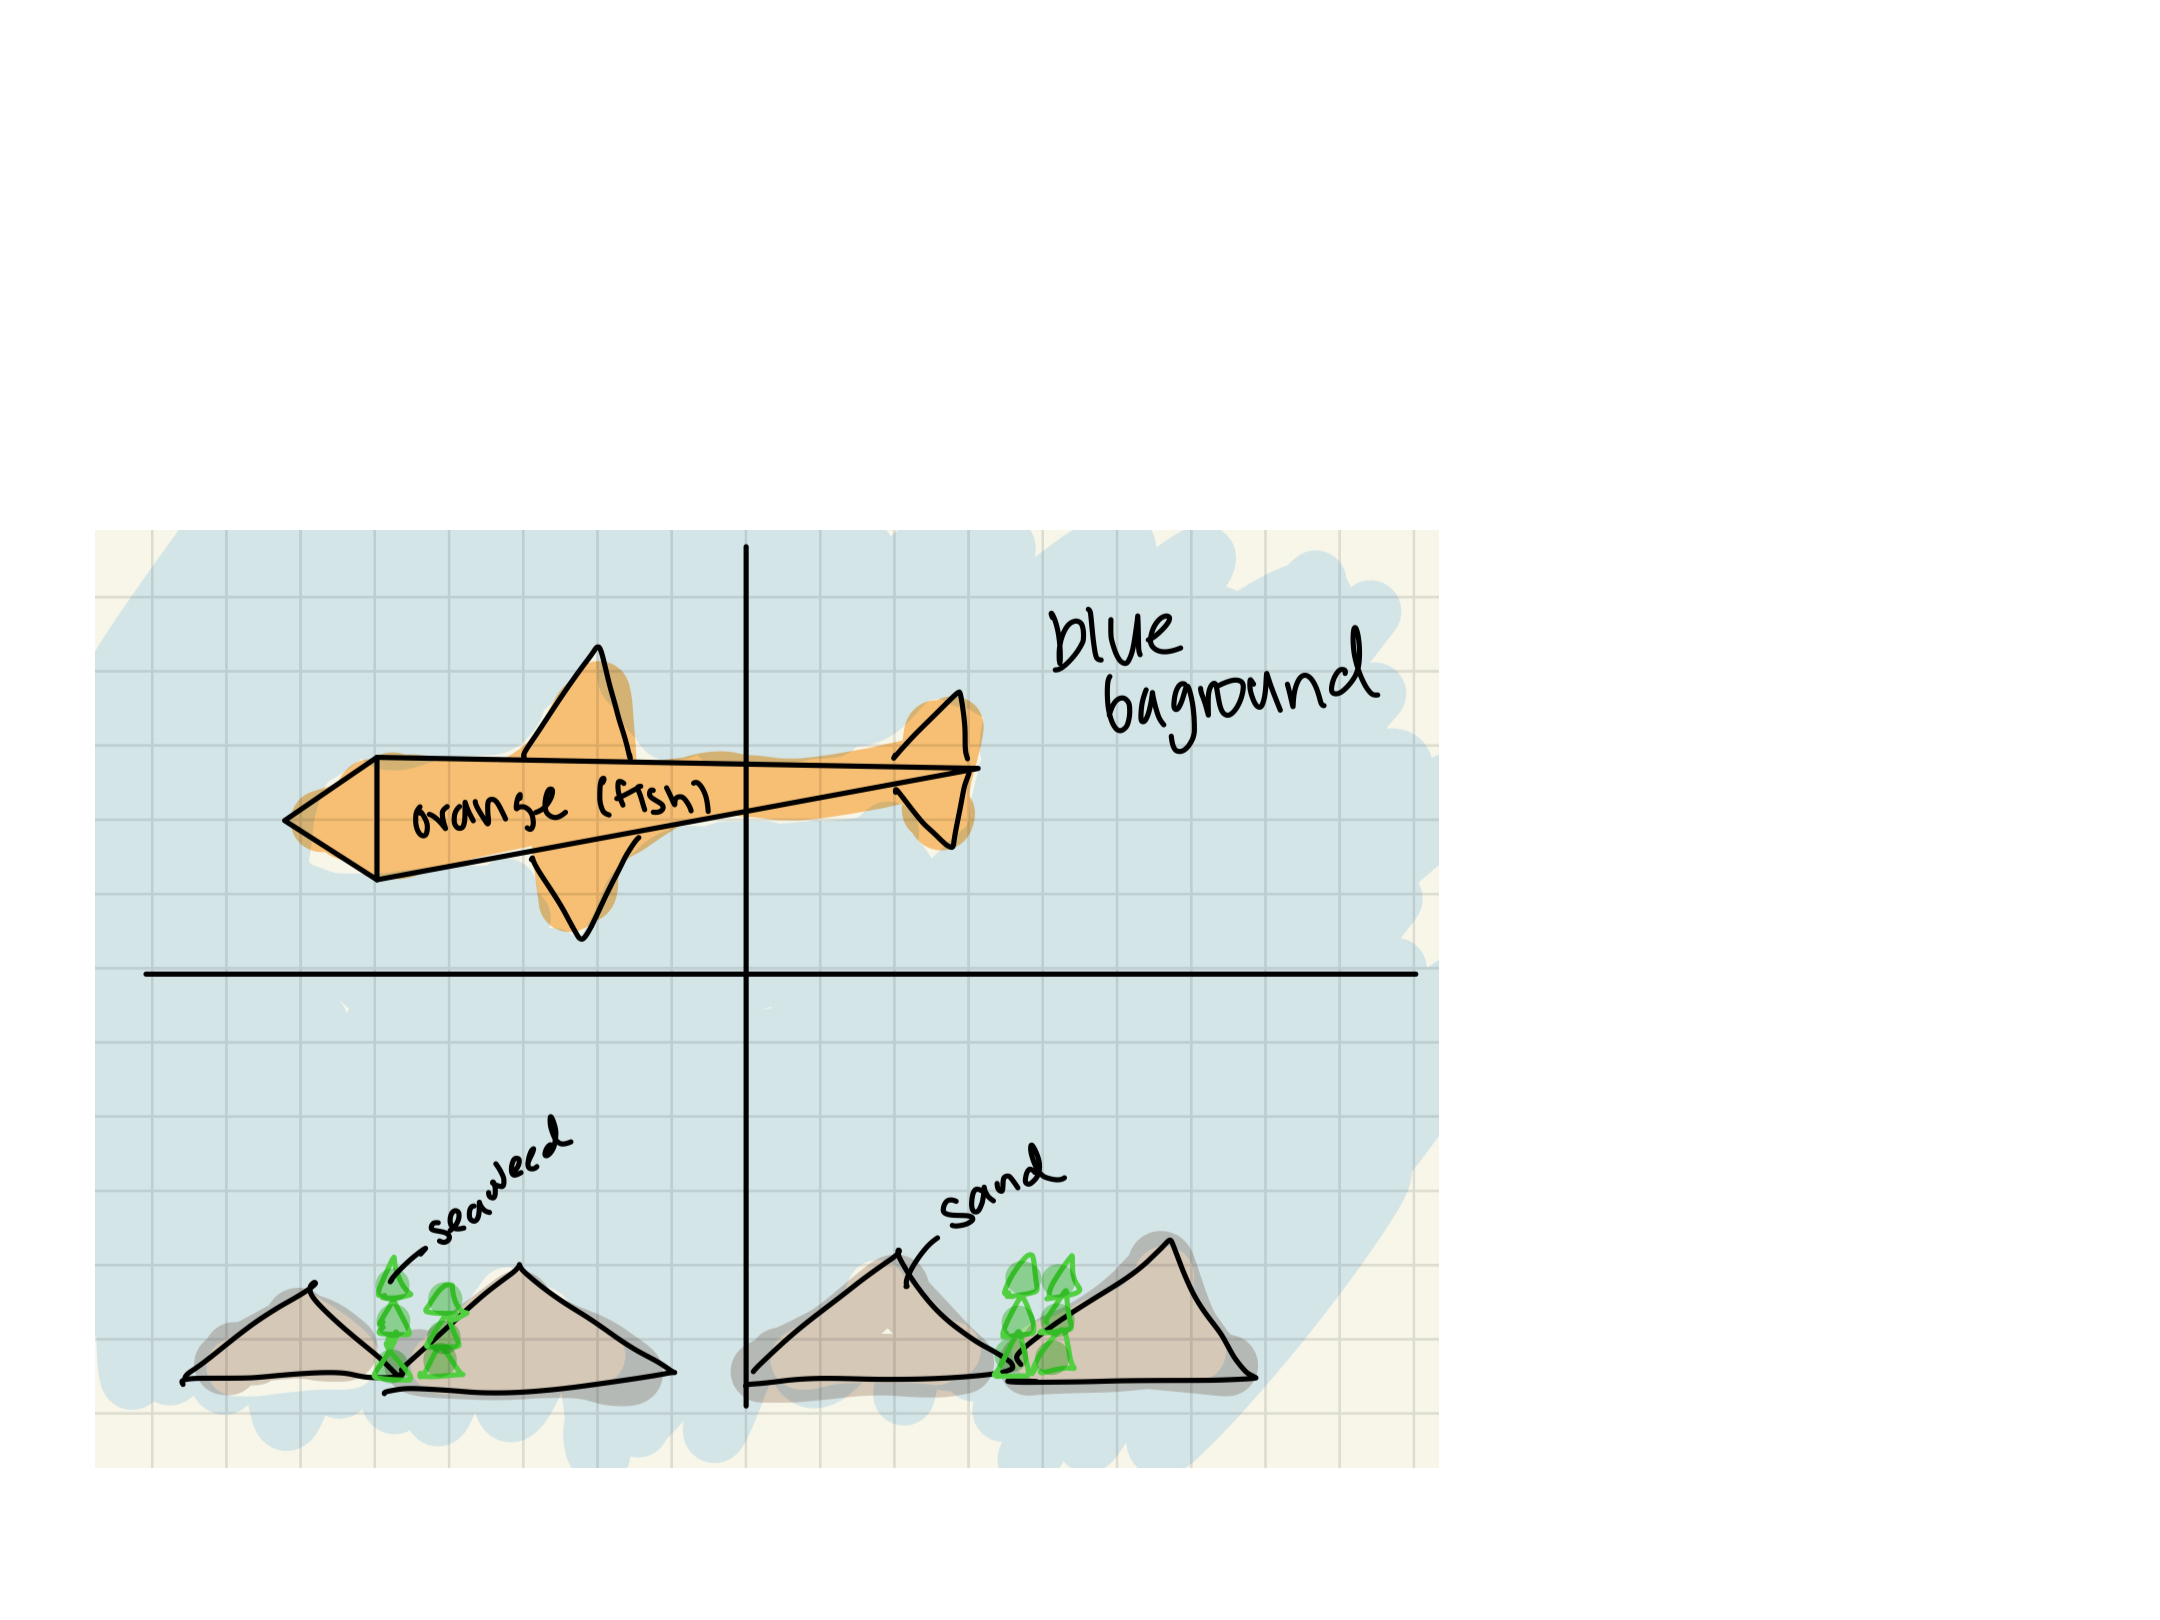 blue
bayground
orange (fish)
seaweed
sand